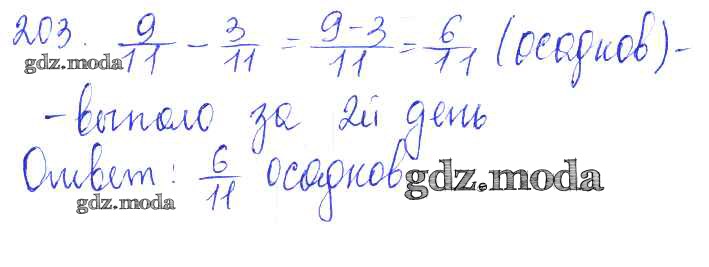 203. 9/11 - 3/11 = 9-3/11 = 6/11 (осадков) -
gdz.moda
- выпало за 2й день
Ответ: 6/11 осадков
gdz.moda
gdz.moda